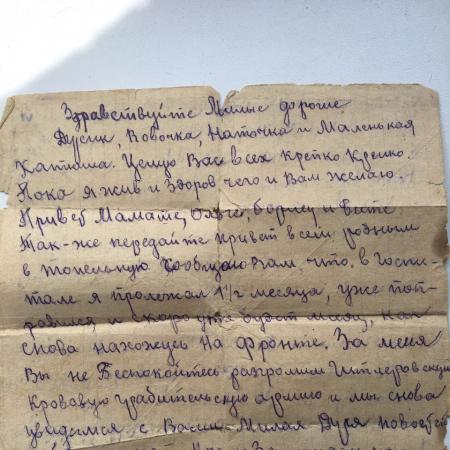 Здравствуйте Милые дорогие
Дусик, Вовочка, Наточка и Маленькая
Катюша. Целую Вас всех крепко крепко.
Пока я жив и здоров чего и Вам желаю.
Привет Мамаше, Ольге, Борису и
Так-же передайте привет всем родным
в сообщаю Вам, что в госпи-
тале я пролежал 1 1/2 месяца, уже поп-
равился и скоро уже будет месяц, как
снова нахожусь на фронте. За меня
Вы не беспокойтесь разгромим Гитлеровскую
кровавую грабительскую армию и мы снова
увидимся с Вами. Милая Дуся новостей